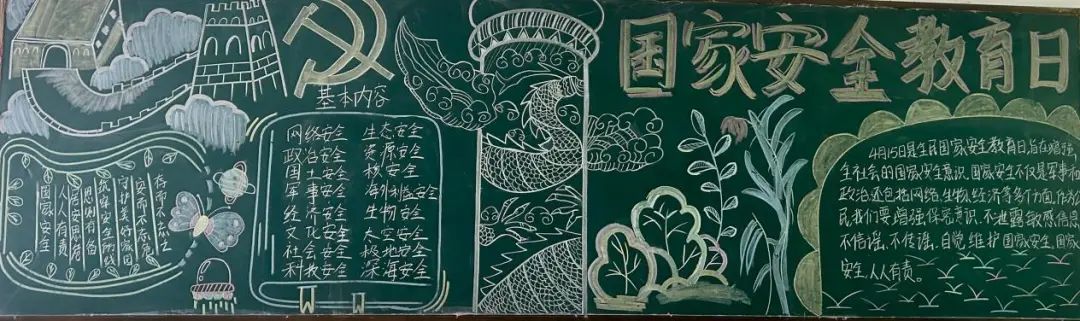 国家安全教育日
国家安全
人人有责
居安思危
思则有备
筑牢安全防线
守护美好家园
安而不忘危
存而不忘亡
基本内容
网络安全 生态安全
政治安全 资源安全
国土安全 核安全
军事安全 海外利益安全
经济安全 生物安全
文化安全 太空安全
社会安全 极地安全
科技安全 深海安全
4月15日是全民国家安全教育日,旨在增强
全社会的国家安全意识.国家安全不仅是军事和
政治还包括网络、生物、经济等多个方面.作为公
民我们要增强保密意识,不泄露敏感信息
不信谣,不传谣.自觉维护国家安全.国家
安全,人人有责。